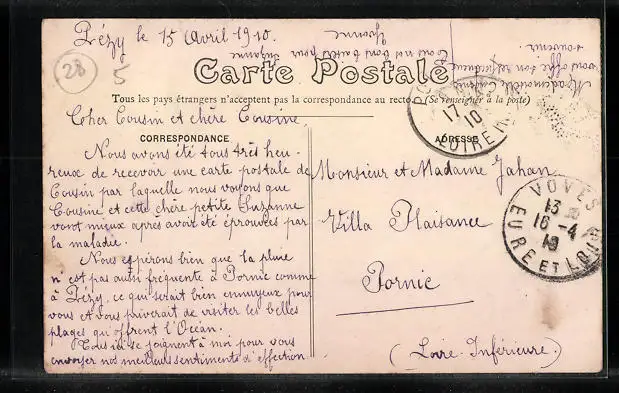 Pézy le 15 Avril 1910.
Yvonne
Tous nos bons baisers pour Suzanne
Mademoiselle
vous offre son respectueux
souvenir.
28
5
Carte Postale
Tous les pays étrangers n'acceptent pas la correspondance au recto (Se renseigner à la poste)
Cher Cousin et chère Cousine
CORRESPONDANCE
ADRESSE
Nous avons été tous très heu-
reux de recevoir une carte postale de
Cousin par laquelle nous voyons que
Cousine et cette chère petite Suzanne
vont mieux après avoir été éprouvées par
la maladie.
Nous espérons bien que la pluie
n'est pas aussi fréquente à Pornic comme
à Pézy, ce qui serait bien ennuyeux pour
vous et vous priverait de visiter les belles
plages qu'offrent l'Océan.
Tous ici se joignent à moi pour vous
envoyer nos meilleurs sentiments d'affection
Monsieur et Madame Jahan
Villa Plaisance
Pornic
(Loire Inférieure.)
17
10
LOIRE INF
VOVES
13
16 -4
10
EURE ET LOIR